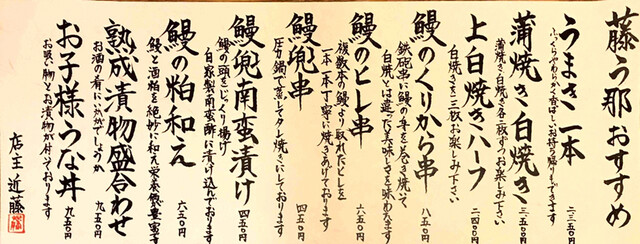 藤う那おすすめ
うまき一本 二三五〇円
ふっくらやわらか香ばしいお持ち帰りもできます
蒲焼き白焼き 三、五〇〇円
蒲焼き白焼き各二枚ずつお楽しみ下さい
上白焼きハーフ 二四〇〇円
白焼きを三枚お楽しみ下さい
鰻のくりから串 八五〇円
鉄砲串に鰻の身を巻き焼いて
白焼とは違った美味しさを味わえます
鰻のヒレ串 六五〇円
複数本の鰻より取れたヒレを
一本一本丁寧に焼きあげております
鰻兜串 四五〇円
圧力鍋で蒸してタレ焼きにしております
鰻兜南蛮漬け 四五〇円
鰻の頭をじっくり揚げ
自家製南蛮酢に漬け込んでおります
鰻の粕和え 六五〇円
鰻と酒粕を絶妙に和え栄養価豊富です
熟成漬物盛合わせ 九五〇円
お酒の肴にいかがでしょうか
お子様うな丼 九五〇円
お吸い物とお漬物が付いております
店主 近藤